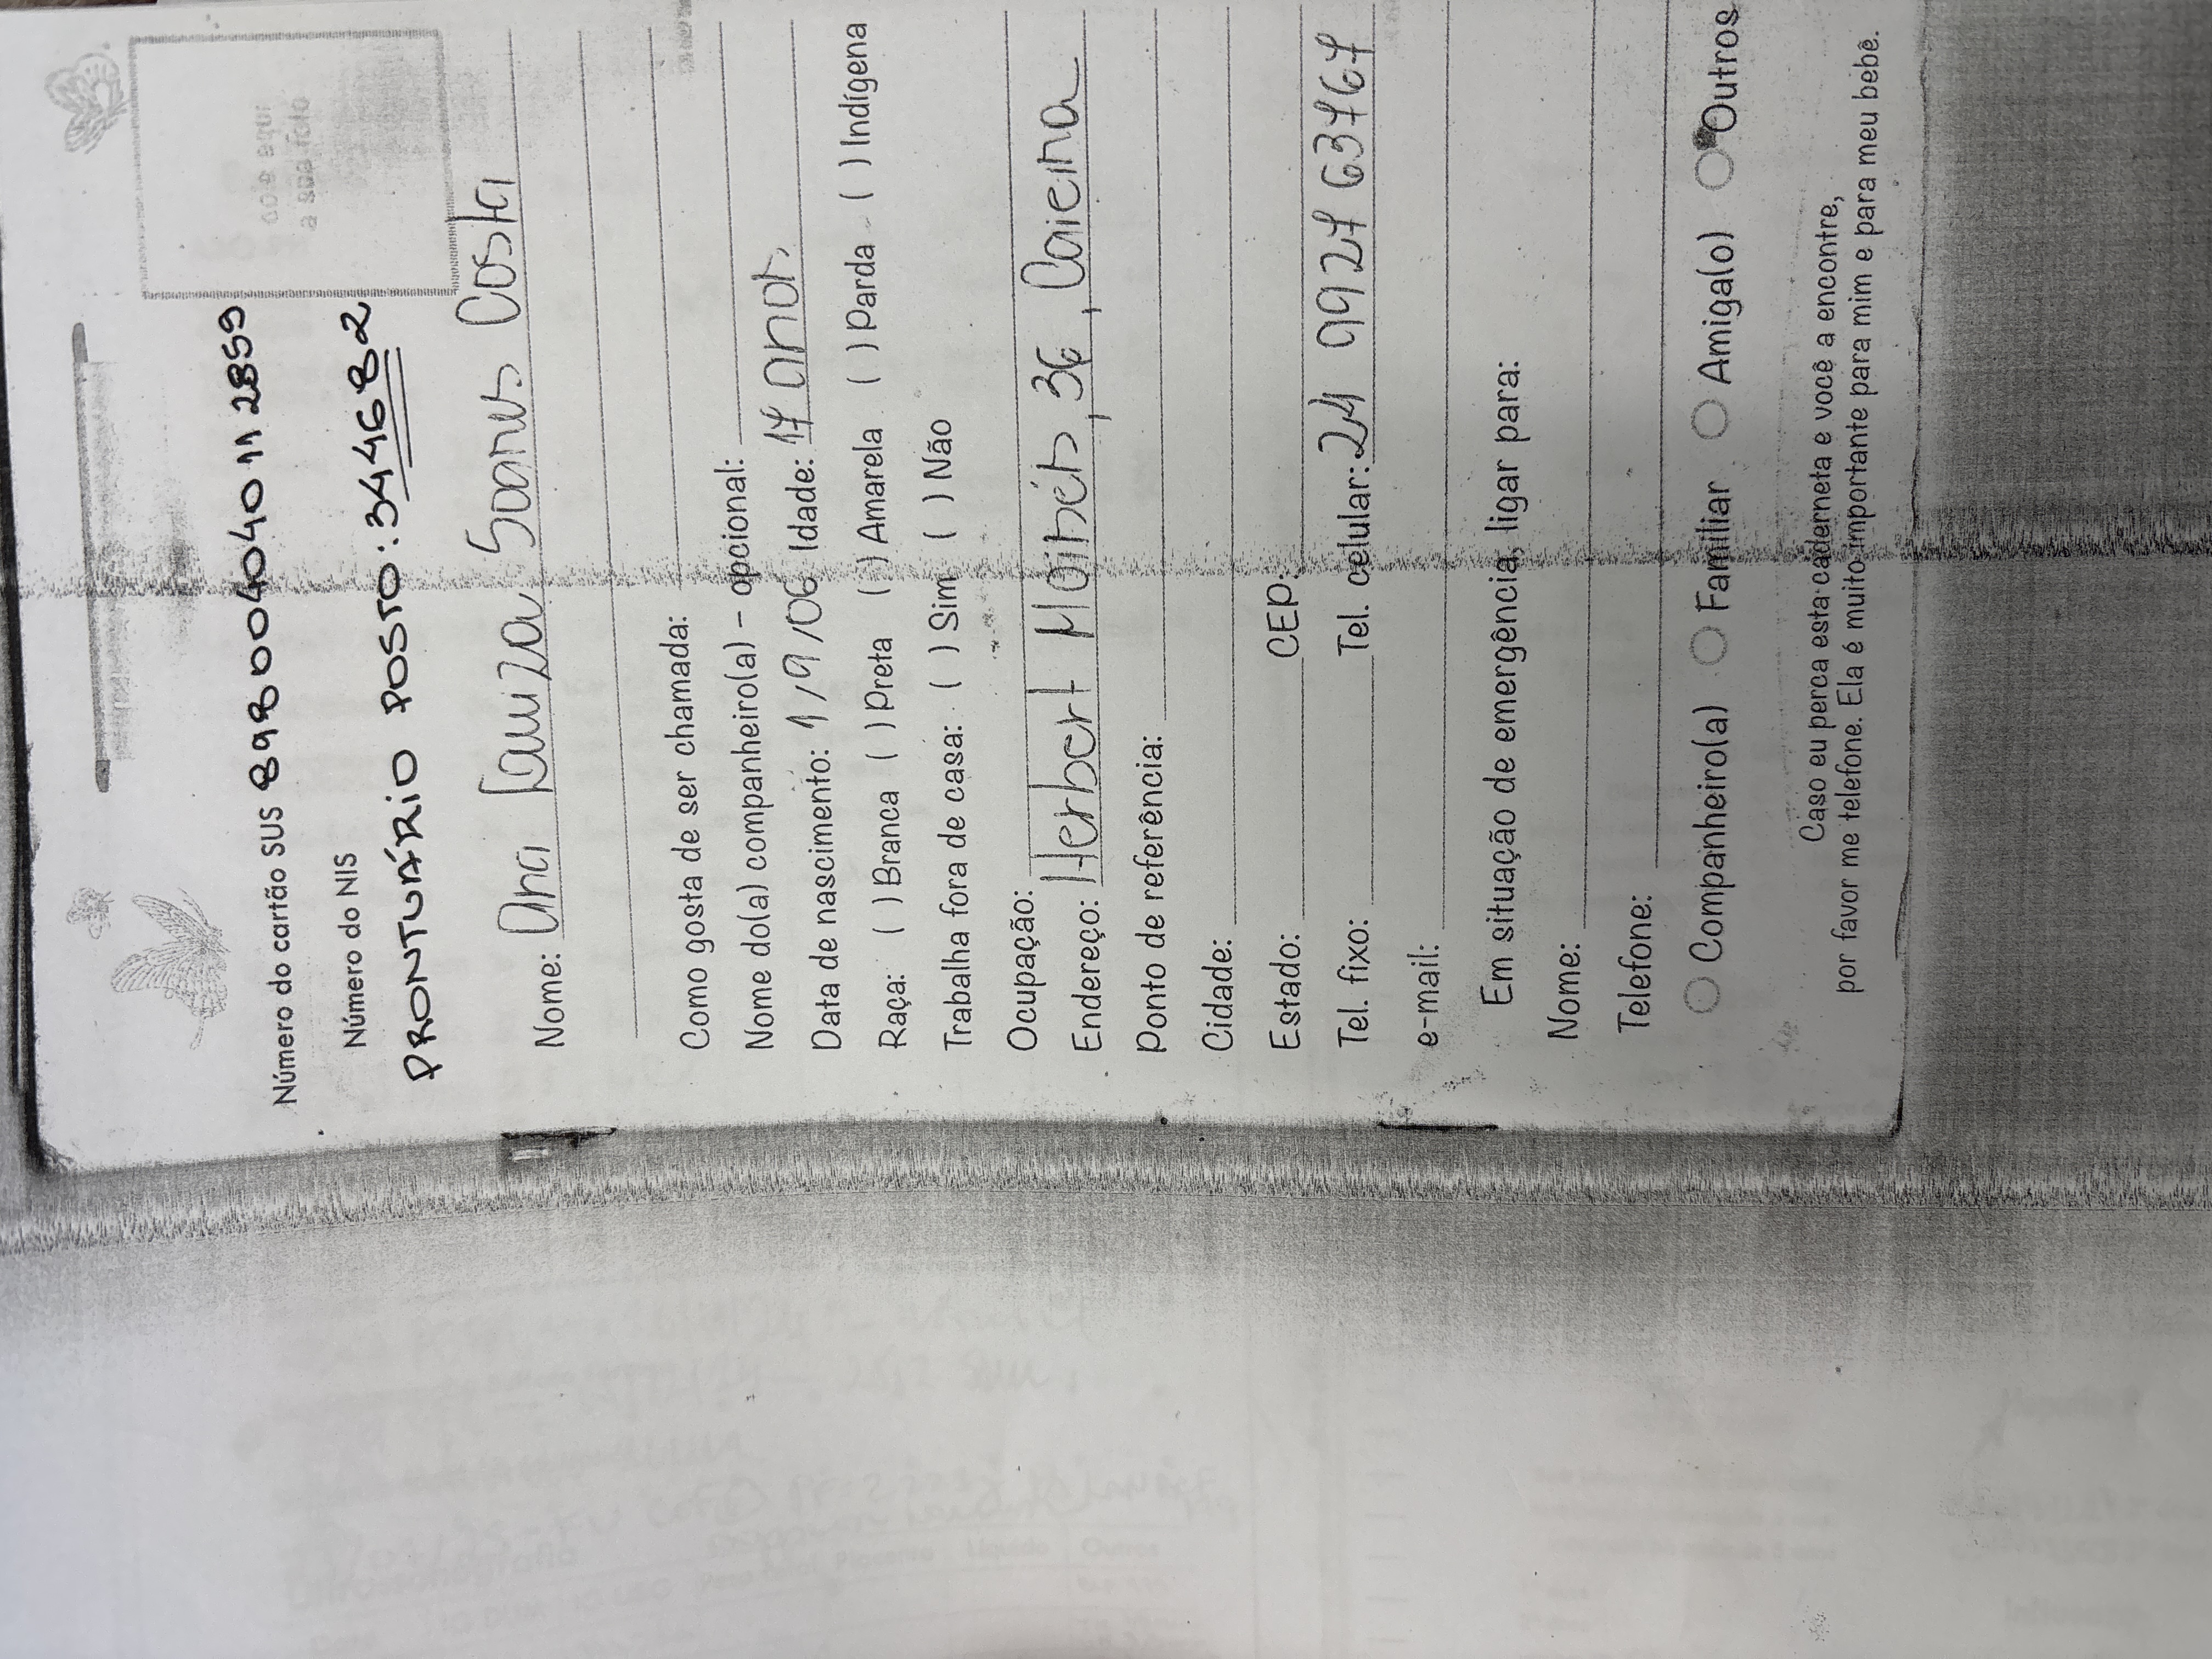 Número do cartão SUS 898 0040 4011 2859
Número do NIS
PRONTUÁRIO POSTO: 3446882
Nome: Ana Lauiza Soares Costa
Como gosta de ser chamada:
Nome do(a) companheiro(a) – opcional:
Data de nascimento: 1 / 9 / 06 Idade: 17 anos
Raça: ( ) Branca ( ) Preta ( ) Amarela ( ) Parda ( ) Indígena
Trabalha fora de casa: ( ) Sim ( ) Não
Ocupação:
Endereço: Herbert 36,
Ponto de referência:
Cidade:
Estado: CEP:
Tel. fixo: Tel. celular: 24 99927 63767
e-mail:
Em situação de emergência, ligar para:
Nome:
Telefone:
Companheiro(a) Familiar Amiga(o) Outros
Caso eu perca esta caderneta e você a encontre,
por favor me telefone. Ela é muito importante para mim e para meu bebê.